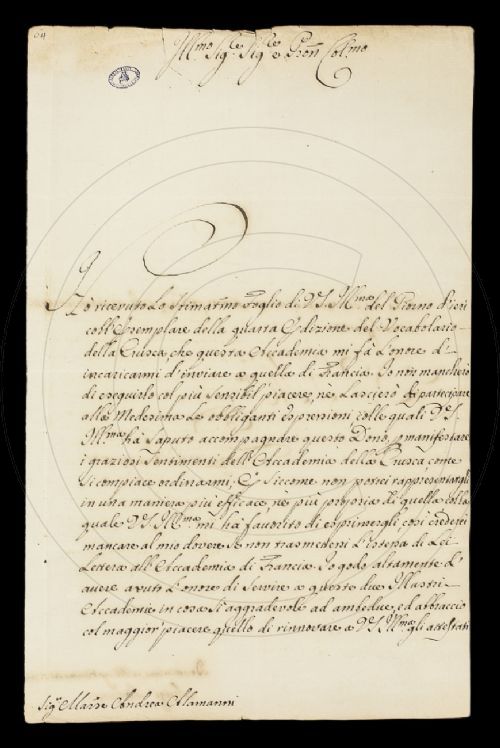 64
Ill.mo Sig.re Sig.re e Pron Col.mo
Ho ricevuto Lo stimatiss.o foglio di V.S. Ill.ma del Giorno d'ieri
coll'Esemplare della quarta Edizione del Vocabolario
della Crusca, che questa Accademia mi fà L'onore d'
incaricarmi d'inviare a quella di Francia. Io non mancherò
di eseguirlo col più sensibil piacere, nè Lascierò di partecipare
alla Medesima Le obbliganti espressioni colle quali V.S.
Ill.ma hà saputo accompagnare questo Dono, p manifestare
i graziosi sentimenti dell'Accademia della Crusca come
si compiace ordinarmi; E siccome non potrei rappresentargli
in una maniera più efficace, nè più propria di quella colla
quale V.S. Ill.ma mi hà favorito di esprimergli, così crederei
mancare al mio dovere se non trasmettessi L'istessa di Lei
Lettera all'Accademia di Francia. Io godo altamente d'
avere avuto L'onore di servire a queste due Illustri
Accademie in cosa sì aggradevole ad ambedue, ed abbraccio
col maggior piacere quello di rinnovare a V.S. Ill.ma gli attestati
Sig.r March.e Andrea Alamanni